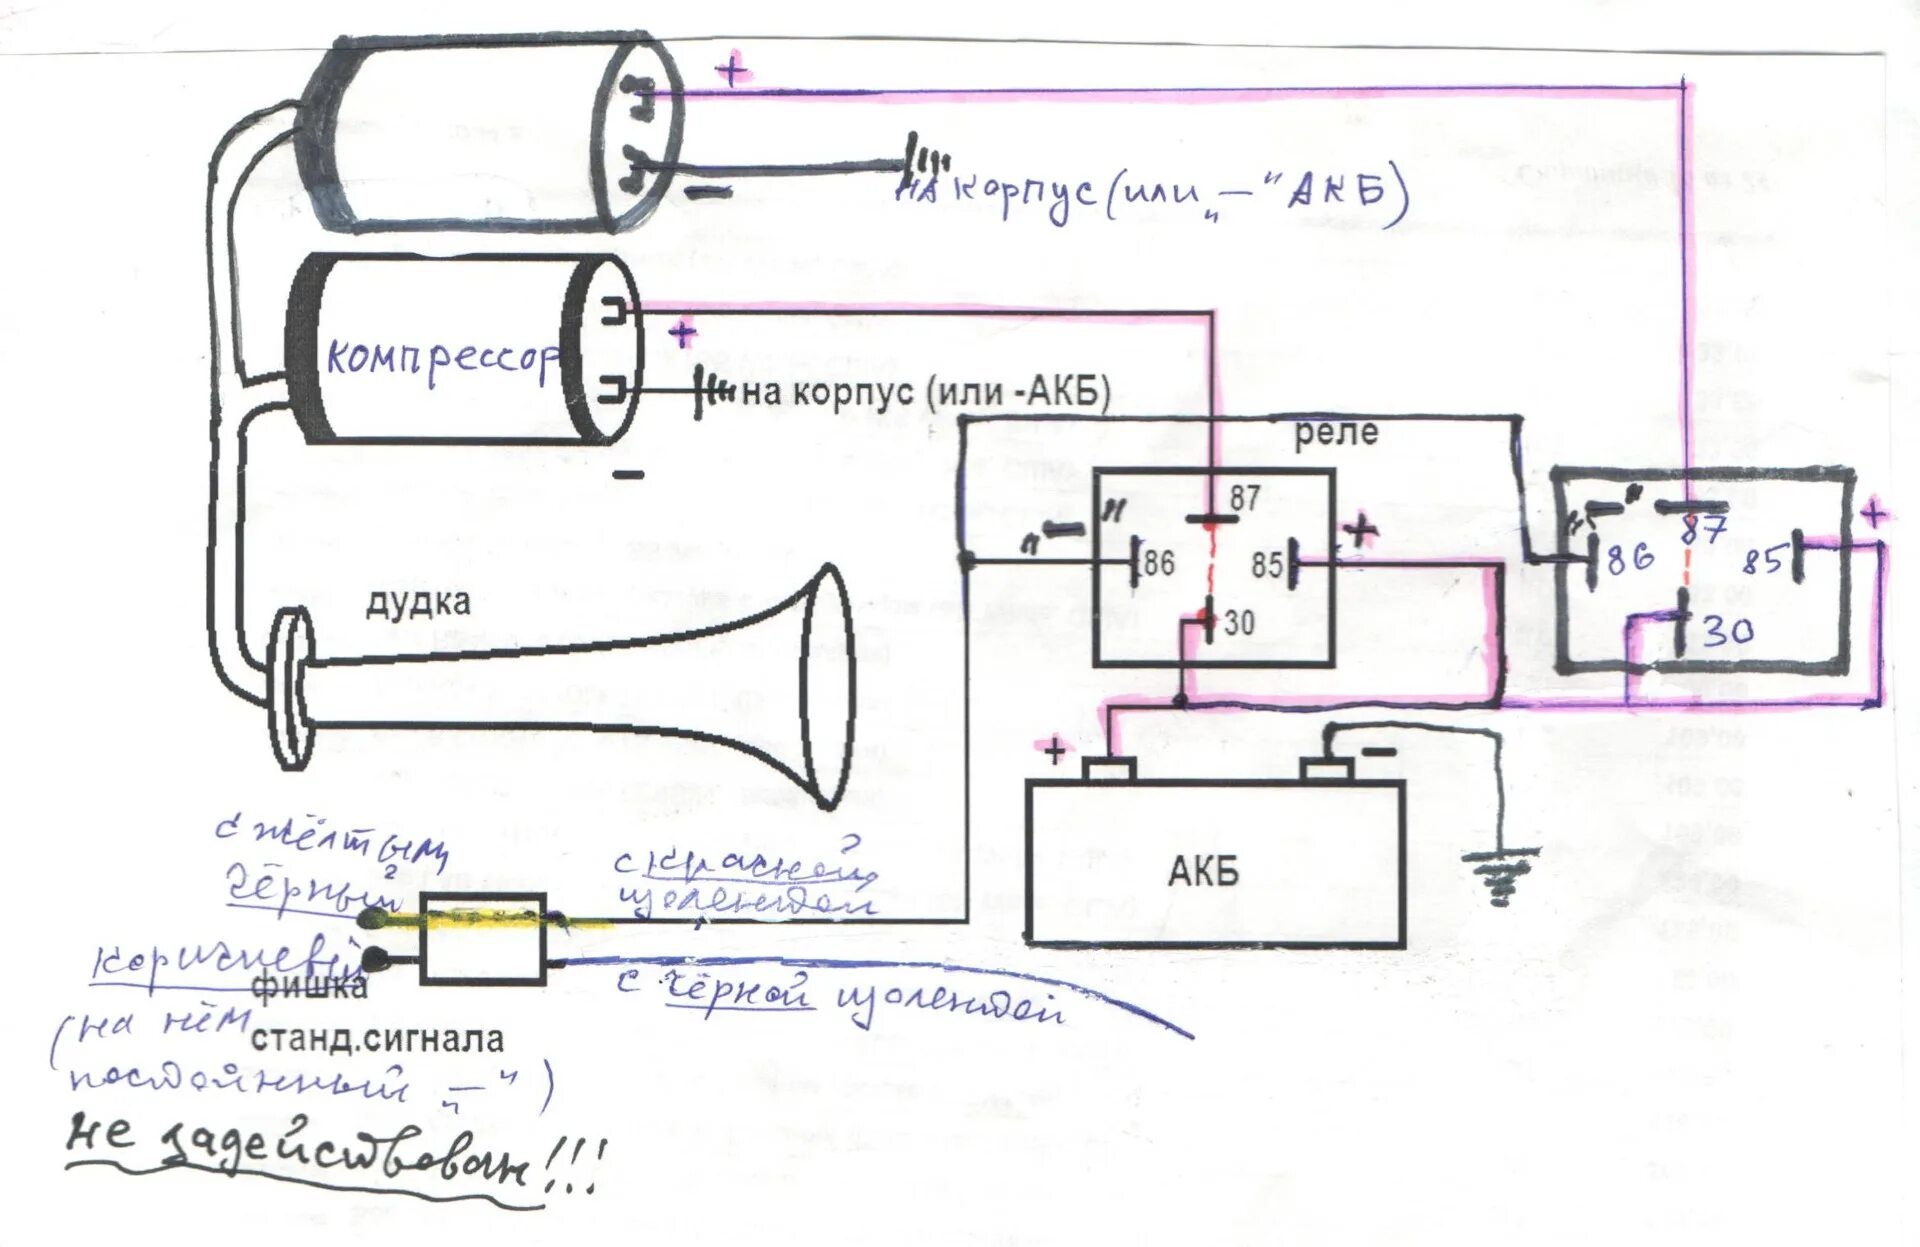 +
на корпус (или „—“ АКБ)
—
компрессор
+
на корпус (или -АКБ)
—
реле
87
"—"
86
85
+
30
"—"
87
86
85
+
30
дудка
+
—
АКБ
с жёлтым
чёрный
с красной
изолентой
коричневый
фишка
с чёрной изолентой
(на нём
станд.сигнала
постоянный „—“)
не задействован!!!